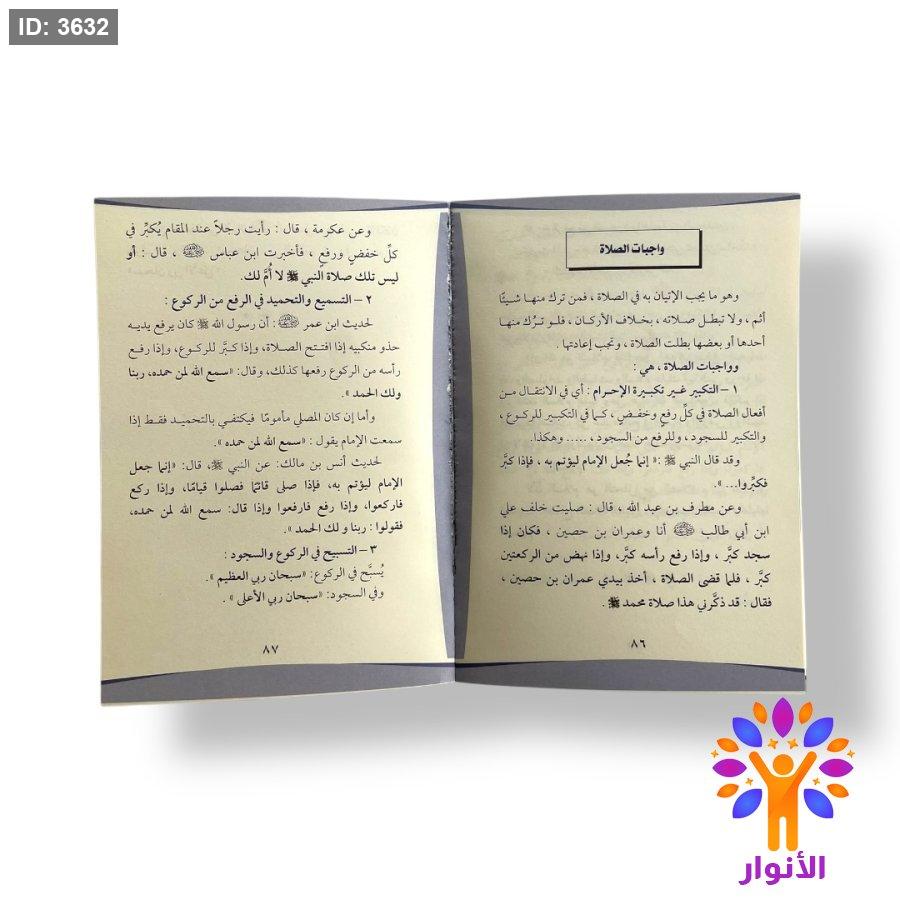 ID: 3632
واجبات الصلاة
وهو ما يجب الإتيان به في الصلاة ، فمن ترك منها شيئًا
أثم ، ولا تبطل صلاته ، بخلاف الأركان ، فلو ترك منها
أحدها أو بعضها بطلت الصلاة ، وتجب إعادتها .
وواجبات الصلاة ، هي :
١ – التكبير غير تكبيرة الإحرام : أي في الانتقال من
أفعال الصلاة في كلِّ رفعٍ وخفضٍ ، كما في التكبير للركوع ،
والتكبير للسجود ، وللرفع من السجود ، ..... وهكذا.
وقد قال النبي ﷺ :« إنما جُعل الإمام ليؤتم به ، فإذا كبَّر
فكبِّروا... ».
وعن مطرف بن عبد الله ، قال : صليت خلف علي
ابن أبي طالب أنا وعمران بن حصين ، فكان إذا
سجد كبَّر ، وإذا رفع رأسه كبَّر، وإذا نهض من الركعتين
كبَّر ، فلما قضى الصلاة ، أخذ بيدي عمران بن حصين ،
فقال : قد ذكَّرني هذا صلاة محمد ﷺ .
٨٦
وعن عكرمة ، قال : رأيت رجلاً عند المقام يُكبِّر في
كلِّ خفضٍ ورفعٍ ، فأخبرت ابن عباس ، قال : أو
ليس تلك صلاة النبي ﷺ لا أُمَّ لك.
٢ – التسميع والتحميد في الرفع من الركوع :
لحديث ابن عمر : أن رسول الله ﷺ كان يرفع يديه
حذو منكبيه إذا افتتح الصلاة، وإذا كبَّر للركوع، وإذا رفع
رأسه من الركوع رفعها كذلك، وقال: «سمع الله لمن حمده، ربنا
ولك الحمد ».
وأما إن كان المصلي مأمومًا فيكتفي بالتحميد فقط إذا
سمعت الإمام يقول : «سمع الله لمن حمده ».
لحديث أنس بن مالك: عن النبي ﷺ، قال: «إنما جعل
الإمام ليؤتم به، فإذا صلى قائمًا فصلوا قيامًا، وإذا ركع
فاركعوا، وإذا رفع فارفعوا وإذا قال: سمع الله لمن حمده،
فقولوا : ربنا و لك الحمد ».
٣ – التسبيح في الركوع والسجود :
يُسبَّح في الركوع: «سبحان ربي العظيم ».
وفي السجود: «سبحان ربي الأعلى » .
٨٧
الأنوار